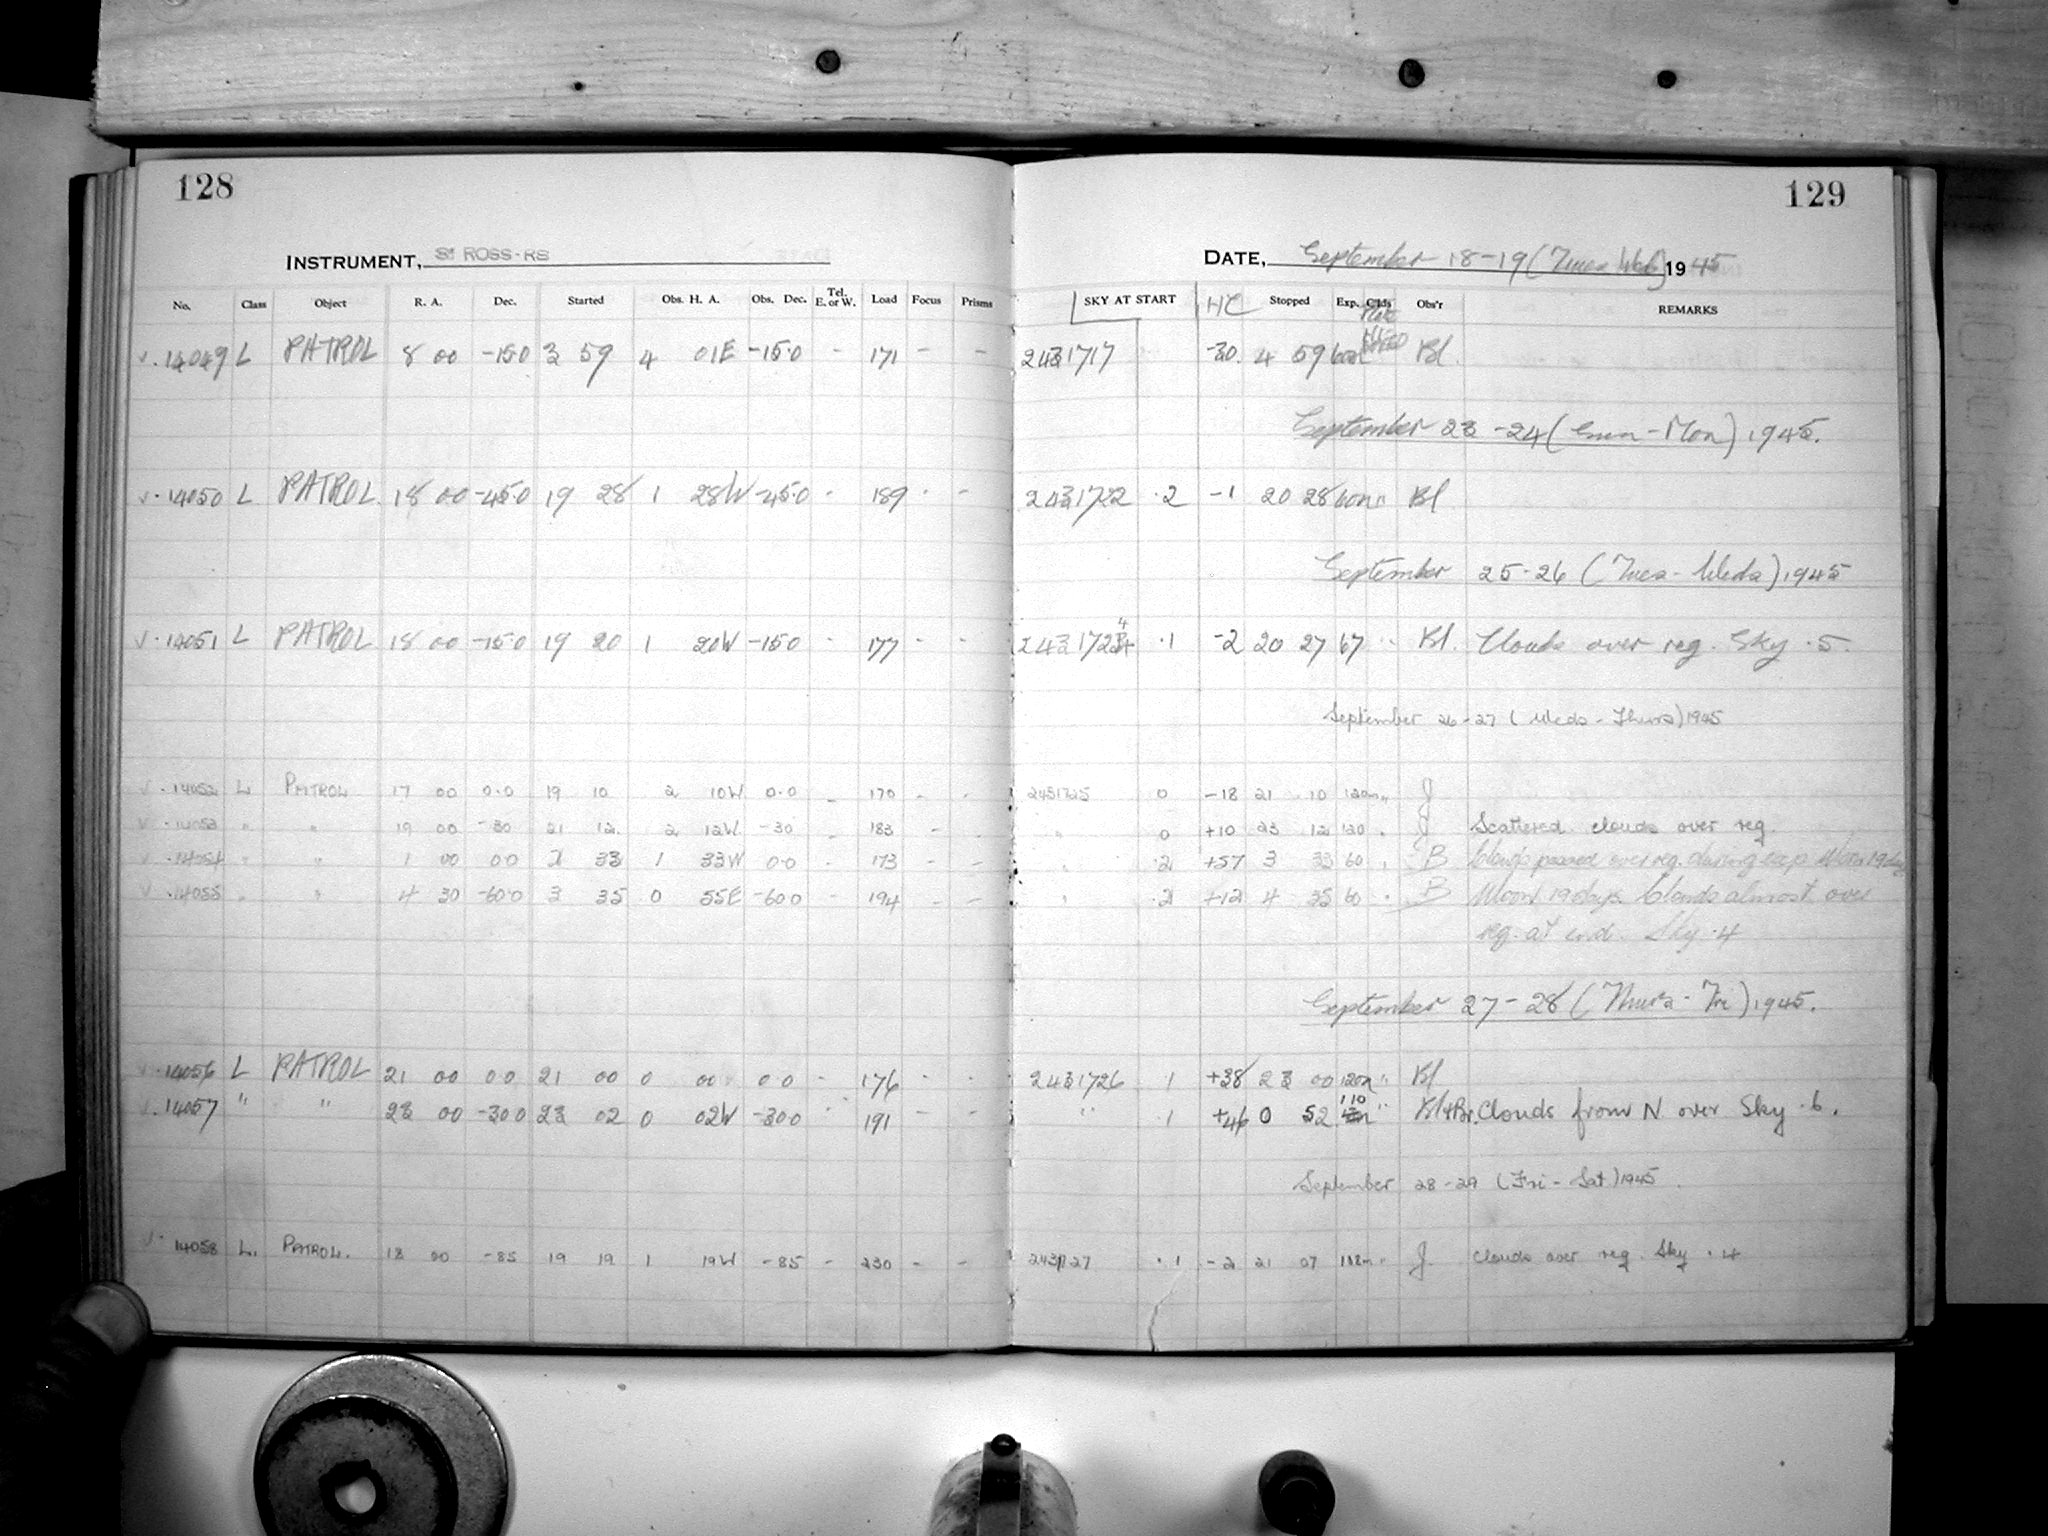 128
129
INSTRUMENT, ROSS-RS
DATE, September 18-19 (Tues Wed) 1945
No. Class Object R. A. Dec. Started Obs. H. A. Obs. Dec. Tel. E. or W. Load Focus Prisms SKY AT START HC Stopped Exp. Clds Plate Obs'r REMARKS
√. 14049 L PATROL 8 00 -15.0 3 59 4 01E -15.0 - 171 - - 2431717 -30. 4 59 60m Bl.
September 23-24 (Sun-Mon) 1945.
√. 14050 L PATROL 18 00 -45.0 19 28 1 28W -45.0 - 189 - - 2431722 .2 -1 20 28 60m " Bl
September 25-26 (Tues-Weds) 1945
√. 14051 L PATROL 18 00 -15.0 19 20 1 20W -15.0 - 177 - - 2431724 .1 -2 20 27 67 " Bl. Clouds over reg. Sky .5.
September 26-27 (Weds-Thurs) 1945
√. 14052 L PATROL 17 00 0.0 19 10 2 10W 0.0 - 170 - - 2431725 0 -18 21 10 120m " J
√. 14053 " " 19 00 -30 21 12 2 12W -30 - 183 - - " 0 +10 23 12 120 " J Scattered clouds over reg.
√. 14054 " " 1 00 0.0 2 33 1 33W 0.0 - 173 - - " .2 +57 3 33 60 " B Clouds passed over reg. during exp. Moon 19 days
√. 14055 " " 4 30 -60.0 3 35 0 55E -60.0 - 194 - - " .2 +12 4 35 60 " B Moon 19 days. Clouds almost over
reg. at end. Sky .4
September 27-28 (Thurs-Fri) 1945.
√. 14056 L PATROL 21 00 0.0 21 00 0 00 0.0 - 176 - - 2431726 1 +38 23 00 120m " Bl
√. 14057 " " 23 00 -30.0 23 02 0 02W -30.0 - 191 - - " 1 +46 0 52 110 " Bl+Br. Clouds from N over Sky .6.
September 28-29 (Fri-Sat) 1945.
√. 14058 L. PATROL. 18 00 -85 19 19 1 19W -85 - 230 - - 2431727 .1 -2 21 07 108m " J. Clouds over reg. Sky .4